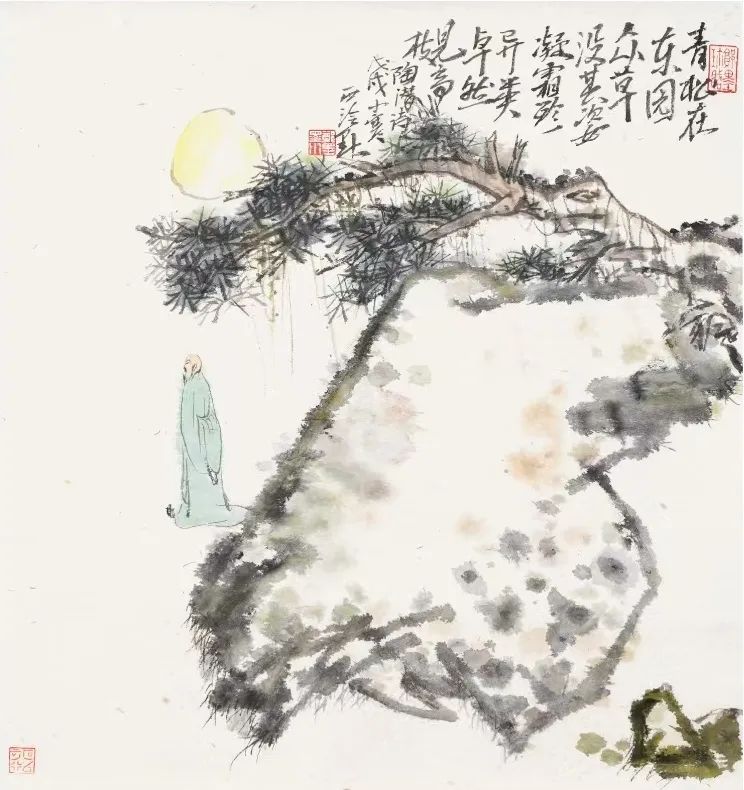 青松在
东园
众草
没其姿
凝霜殄
异类
卓然
见高
枝
陶潜诗
戊戌小寒